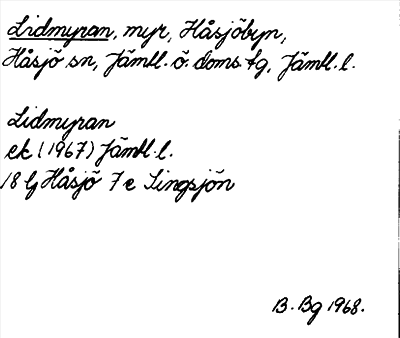 Lidmyran, myr, Håsjöbyn,
Håsjö sn, Jämtl. ö. doms tg, Jämtl. l.
Lidmyran
ek (1967) Jämtl. l.
18 G Håsjö 7 e Singsjön
B. Bg 1968.